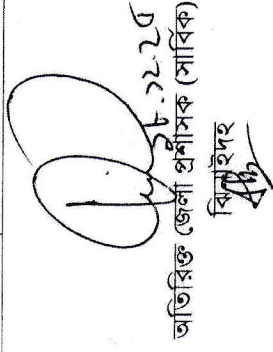 অতিরিক্ত জেলা প্রশাসক (সার্বিক)
ঝিনাইদহ